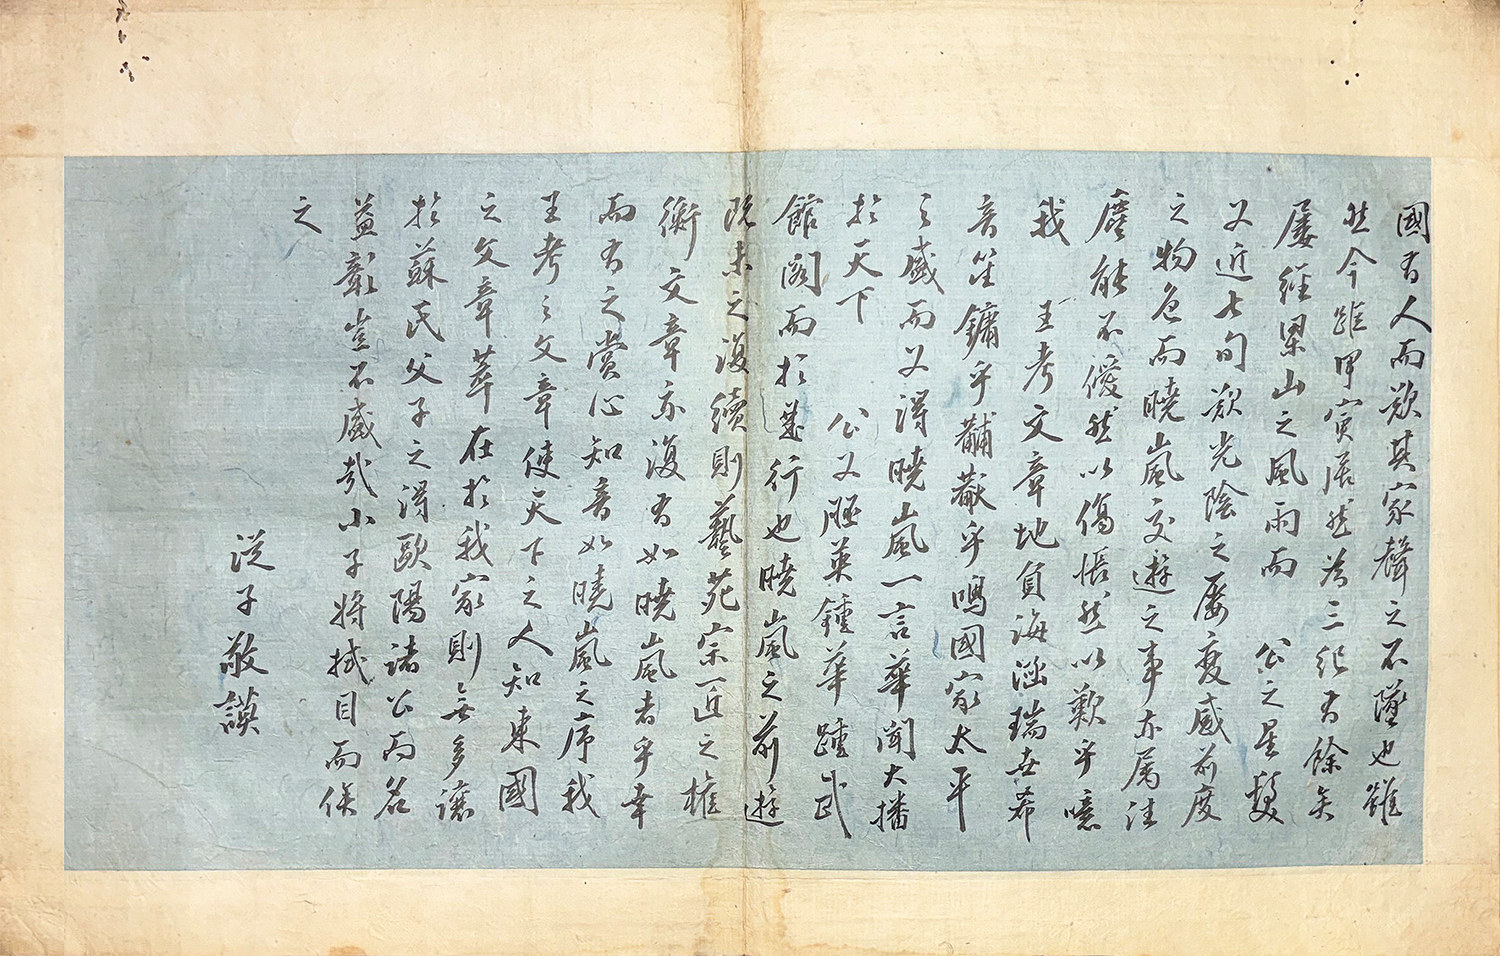 國有人而歎其家聲之不墜也雖
然今距甲寅居然爲三紀有餘矣
屢經梁山之風雨而 公之星鬓
又近七旬歎光陰之屡變感前度
之物色而曉嵐交遊之事亦属洼
塵能不僾然以傷悵然以歎乎噫
我 王考文章地負海涵瑞世希
音笙鏞乎黼黻乎鳴國家太平
之盛而又得曉嵐一言華聞大播
於天下 公又胚英鍾華踵武
館閣而於是行也曉嵐之前遊
既未之復續則藝苑宗匠之權
衡文章亦復有如曉嵐者乎幸
而有之賞心知音如曉嵐之序我
王考之文章使天下之人知東國
之文章萃在於我家則無多讓
於蘇氏父子之得歐陽諸公而名
益彰豈不盛哉小子將拭目而俟
之
從子敬謨